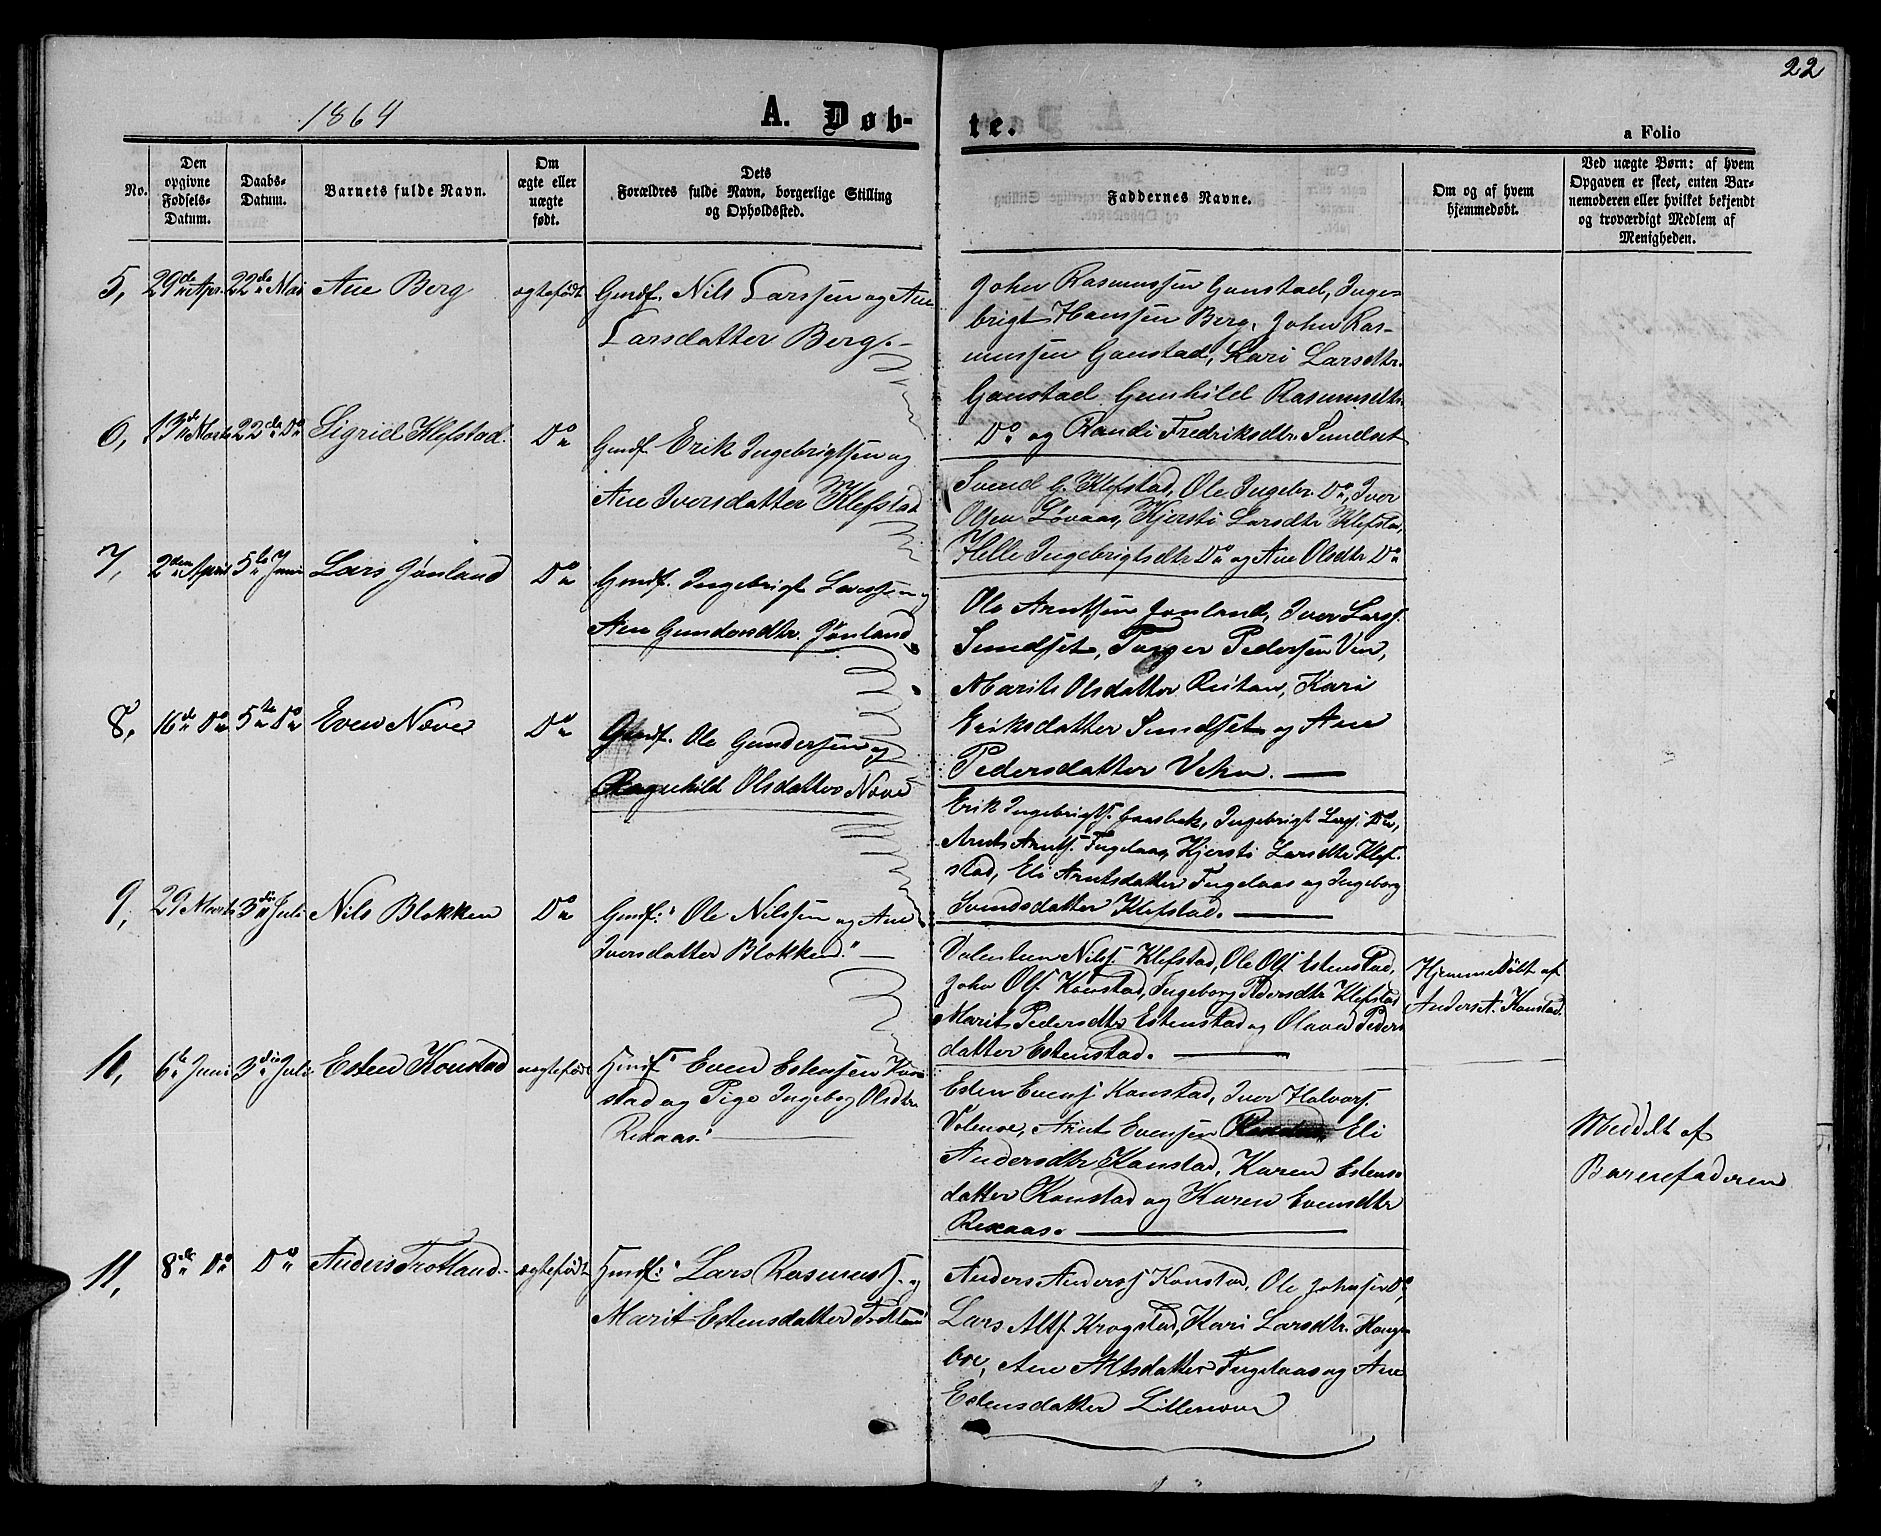 22
1864
A. Døb-
te.
a Folio
No.
Den
opgivne
Fødsels-
Datum.
Daabs-
Datum.
Barnets fulde Navn.
Om
ægte eller
uægte
født.
Dets
Forældres fulde Navn, borgerlige Stilling
og Opholdssted.
Faddernes Navne.
Om og af hvem
hjemmedøbt.
Ved uægte Børn: af hvem
Opgaven er skeet, enten Bar-
nemoderen eller hvilket bekjendt
og troværdigt Medlem af
Menigheden.
5, 29de Apr. 22de Mai Ane Berg ægtefødt Gmdf. Nils Larssen og Ane
Larsdatter Berg.
John Rasmussen Gunstad, Inge-
brigt Hanssen Berg, John Ras-
mussen Gunstad, Kari Larsdtr.
Gunstad Gunhild Rasmusdtr.
Do. og Randi Fredriksdtr. Sundset
6, 13de Marts 22de Do Sigrid Klefstad. Do Gmdf. Erik Ingebrigtsen og
Ane Iversdatter Klefstad
Svend E. Klefstad, Ole Ingebr. Do, Iver
Olsen Løvaas, Kjersti Larsdtr Klefstad,
Helle Ingebrigtsdtr Do og Ane Olsdtr Do
7, 2den April 5te Juni Lars Jønland Do Gmdf. Ingebrigt Larssen og
Ane Gundersdtr. Jønland
Ole Arntsen Jonland, Iver Larss.
Sundset, Peder Pedersen Ven,
Marit Olsdatter Reitan, Kari
Eriksdatter Sundset og Ane
Pedersdatter Vehn.
8, 16de Do 5te Do Even Næve Do Gmdf. Ole Gundersen og
Ragnhild Olsdatter Næve
Erik Ingebrigts. Gaasbak, Ingebrigt Do,
Arnt Arnts. Fuglaas, Kjersti Larsdtr Klef-
stad, Eli Arntsdatter Fuglaas og Ingeborg
Svendsdatter Klefstad.
9, 29 Marts 3die Juli Nils Blokken Do Gmdf. Ole Nilssen og Ane
Iversdatter Blokken.
Valentin Nilss. Klefstad, Ole Ols. Estenstad,
John Ols. Konstad, Ingeborg Pedersdtr Klefstad
Marit Pedersdtr Estenstad og Olava Peders
datter Estenstad.
Hjemmedøbt af
Anders A. Konstad.
10, 6te Juni 3die Juli Esten Konstad uægtefødt Hmdf. Even Estensen Kon-
stad og Pige Ingebog Olsdtr
Rexaas.
Esten Evens. Konstad, Iver Halvors.
Volense, Arnt Evensen Eli
Andersdtr Konstad, Karen Estens-
datter Konstad og Karen Evensdtr
Rexaas.
Meddelt af
Barnefaderen
11, 8de Do Do Anders Trotland ægtefødt Hmdf. Lars Rasmuss. og
Marit Estensdatter Trotland
Anders Anderss. Konstad, Ole Johnsen Do,
Lars Alfs. Krogstad, Kari Larsdtr. Haug-
Ane Alfsdatter Fuglaas og Ane
Estensdatter